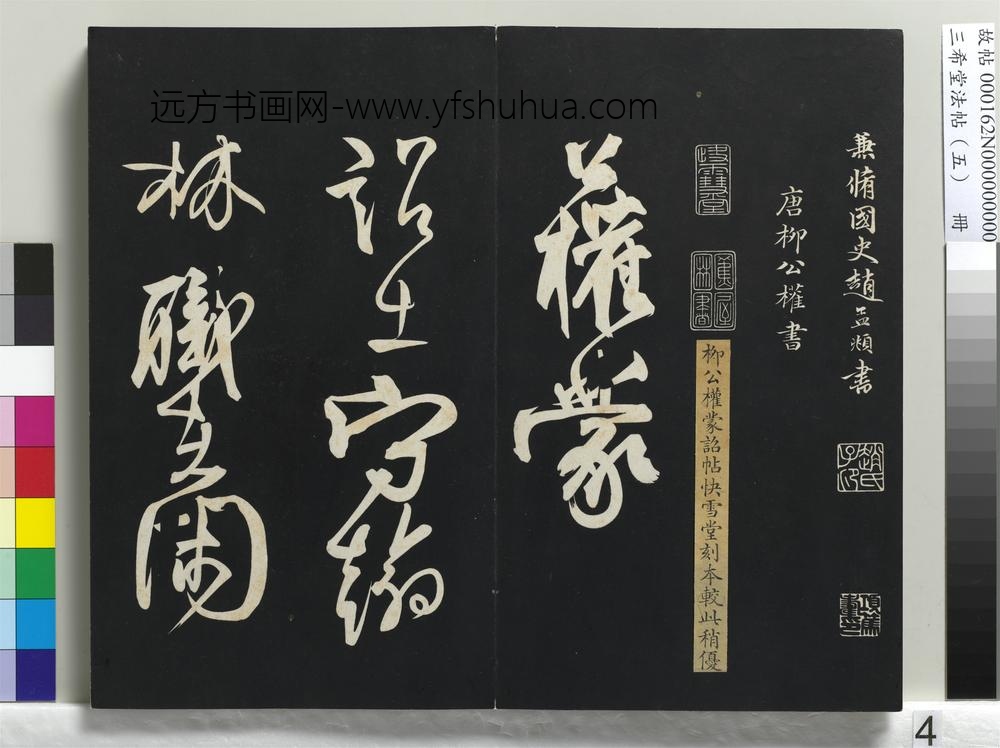 故帖 000162N000000000
三希堂法帖（五） 冊
兼脩國史趙孟頫書
趙氏子昂
唐柳公權書
蕉林書屋
柳公權蒙詔帖快雪堂刻本較此稍優
公權蒙
詔出守翰
林職在閑
远方书画网-www.yfshuhua.com
4